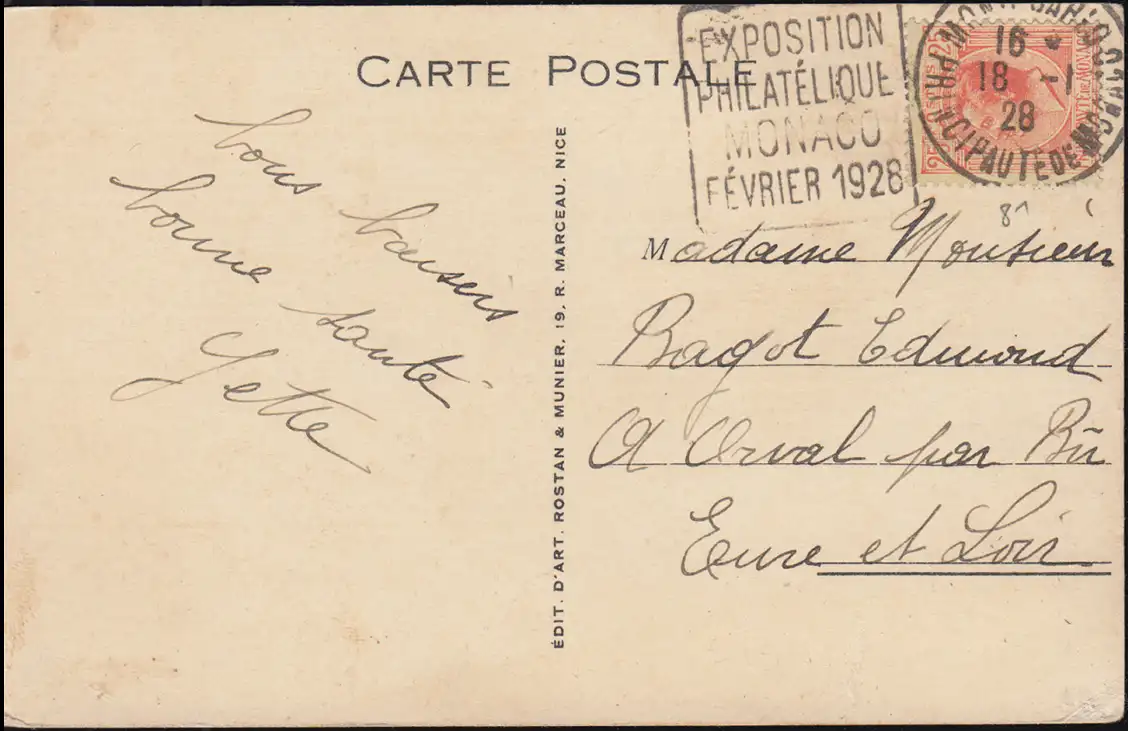 CARTE POSTALE
EXPOSITION
PHILATÉLIQUE
MONACO
FÉVRIER 1928
MONTE CARLO
16 *
18 -1
28
PRINCIPAUTÉ DE MONACO
25 25
bons baisers
bonne santé
Yette
ÉDIT. D'ART. ROSTAN & MUNIER, 19, R. MARCEAU, NICE
Madame Monsieur
Bagot Edmond
A Orval par Bû
Eure et Loir